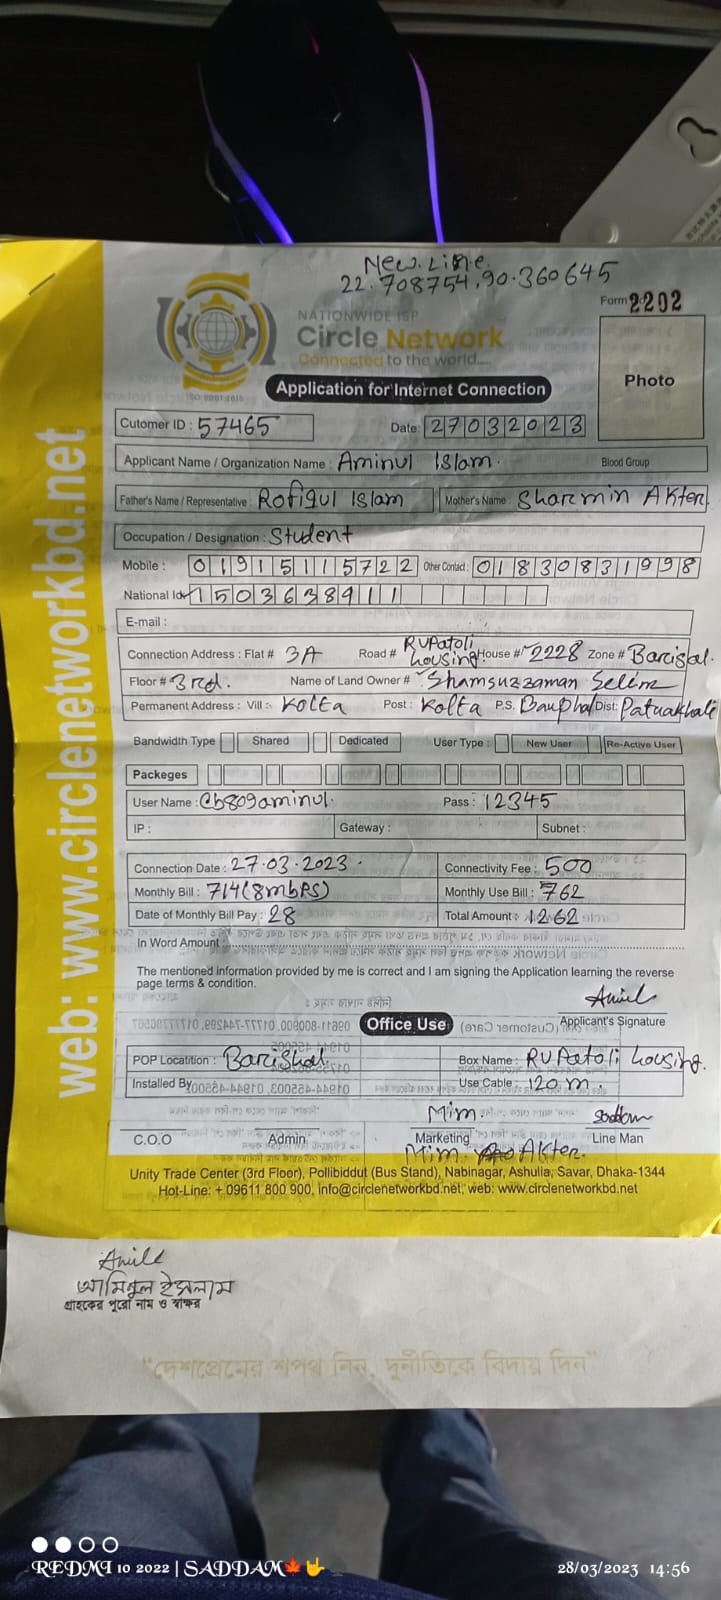 New Line
22.708754,90.360645
Form 2202
NATIONWIDE ISP
Circle Network
Connected to the world....
Photo
ISO 9001:2015
Application for Internet Connection
Cutomer ID : 57465 Date: 27032023
Applicant Name / Organization Name : Aminul Islam. Blood Group
Father's Name / Representative : Rofiqul Islam Mother's Name : Sharmin Akter
Occupation / Designation : Student
Mobile : 01915115722 Other Contact : 01830831998
National Id 1503638911
E-mail :
Connection Address : Flat # 3A Road # RUPatoli housing House # 2228 Zone # Barisal.
Floor # 3rd. Name of Land Owner # Shamsuzzaman Selim
Permanent Address : Vill : Kolta Post : Kolta P.S. Bauphal Dist: Patuakhali
Bandwidth Type Shared Dedicated User Type : New User Re-Active User
Packeges
User Name : Cb809aminul. Pass : 12345
IP : Gateway : Subnet :
Connection Date : 27.03.2023 Connectivity Fee : 500
Monthly Bill : 714(8mbPS) Monthly Use Bill : 762
Date of Monthly Bill Pay : 28 Total Amount : 1262
In Word Amount :
The mentioned information provided by me is correct and I am signing the Application learning the reverse
page terms & condition.
Applicant's Signature
Office Use
POP Locatition : Barishal Box Name : RUPatoli housing.
Installed By Use Cable : 120 m.
Mim Saddam
C.O.O Admin Marketing Line Man
Mim Akter
Unity Trade Center (3rd Floor), Pollibiddut (Bus Stand), Nabinagar, Ashulia, Savar, Dhaka-1344
Hot-Line: + 09611 800 900, info@circlenetworkbd.net, web: www.circlenetworkbd.net
web: www.circlenetworkbd.net
আমিনুল ইসলাম
গ্রাহকের পুরো নাম ও স্বাক্ষর
"দেশপ্রেমের শপথ নিন, দুর্নীতিকে বিদায় দিন"
REDMI 10 2022 | SADDAM🍁🤟♠ 28/03/2023 14:56